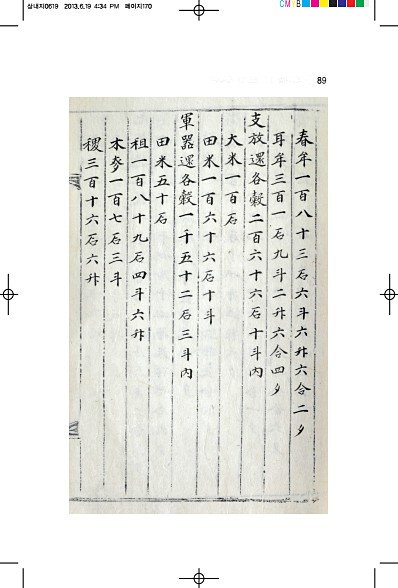 삼내지0619 2013.6.19 4:34 PM 페이지170
CMYB
89
春牟一百八十三石六斗六升六合二夕
耳牟三百一石九斗二升六合四夕
支放還各穀二百六十六石十斗內
大米一百石
田米一百六十六石十斗
軍器還各穀一千五十二石三斗內
田米五十石
租一百八十九石四斗六升
木麥一百七石三斗
稷三百十六石六升